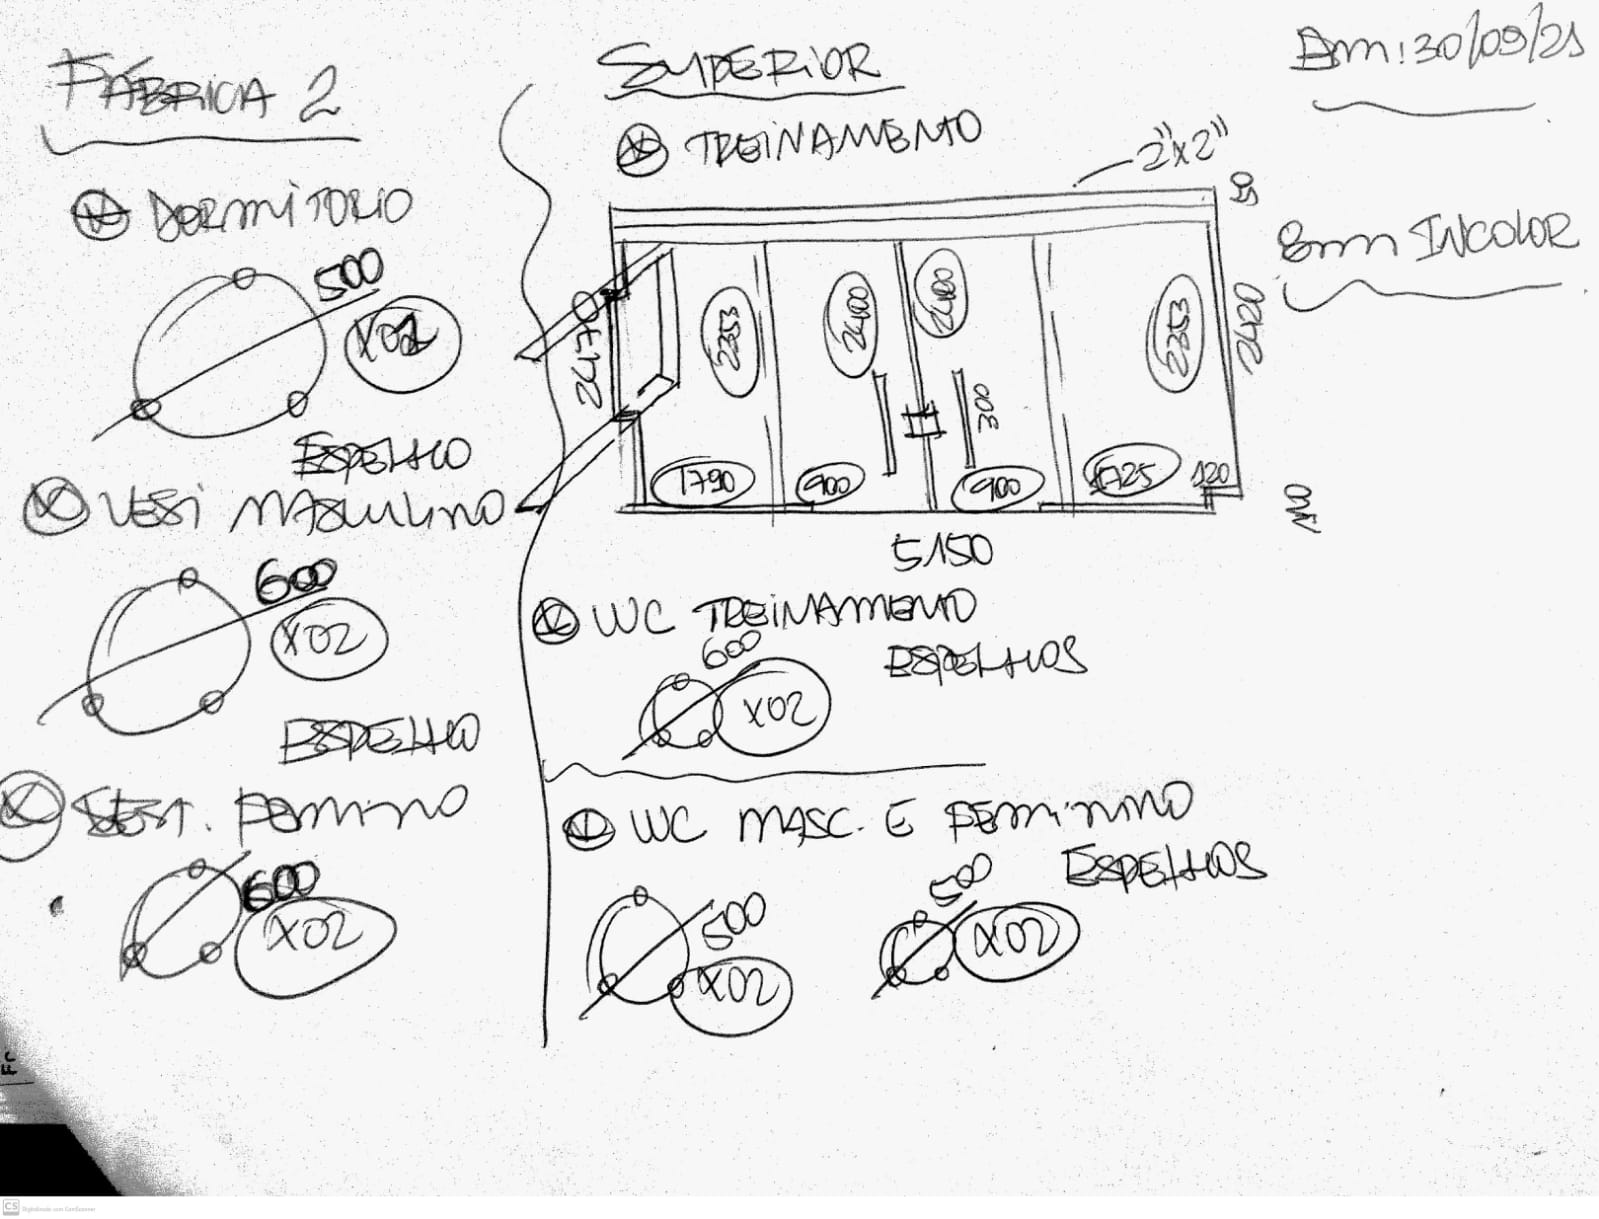 FÁBRICA 2
DORMITORIO
500
X02
ESPELHO
VEST MASCULINO
600
X02
ESPELHO
VEST. FEMININO
600
X02
SUPERIOR
TREINAMENTO
2"x2"
2470
2353
2400
2400
2353
2420
300
1790
900
900
1725
120
5150
WC TREINAMENTO
600
X02
ESPELHOS
WC MASC. E FEMININO
ESPELHOS
500
X02
500
X02
30/09/21
8mm INCOLOR
CS Digitalizado com CamScanner